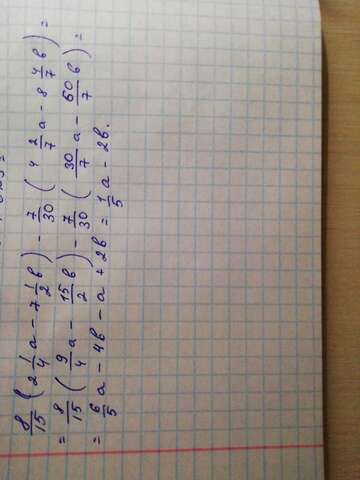 8/15 (2 1/4 a - 7 1/2 b) - 7/30 (4 2/7 a - 8 4/7 b) =
= 8/15 (9/4 a - 15/2 b) - 7/30 (30/7 a - 60/7 b) =
= 6/5 a - 4b - a + 2b = 1/5 a - 2b.